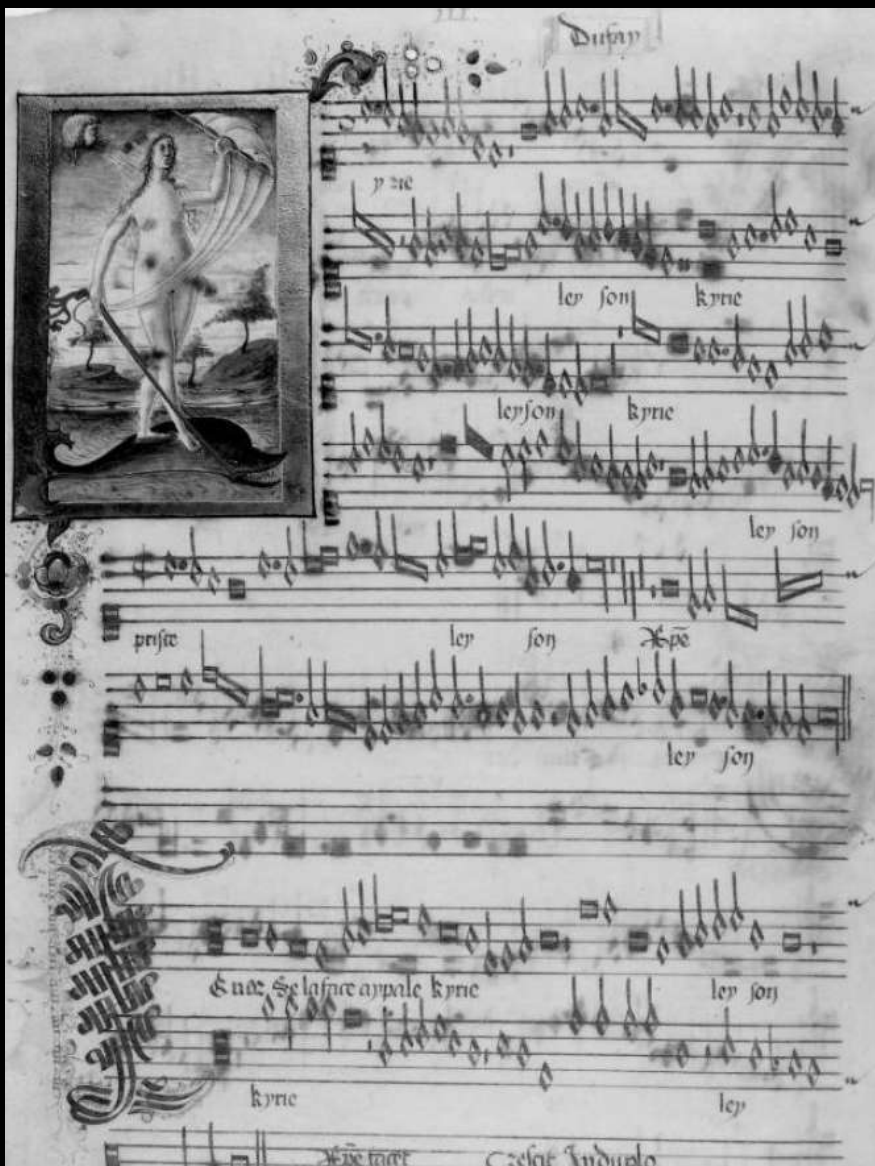 III.
Dufay
yrie
ley son kyrie
leyson kyrie
ley son
priste ley son Xp̄e
ley son
Enor Se la face ay pale kyrie ley son
kyrie ley
Xp̄e tacet Crescit Induplo